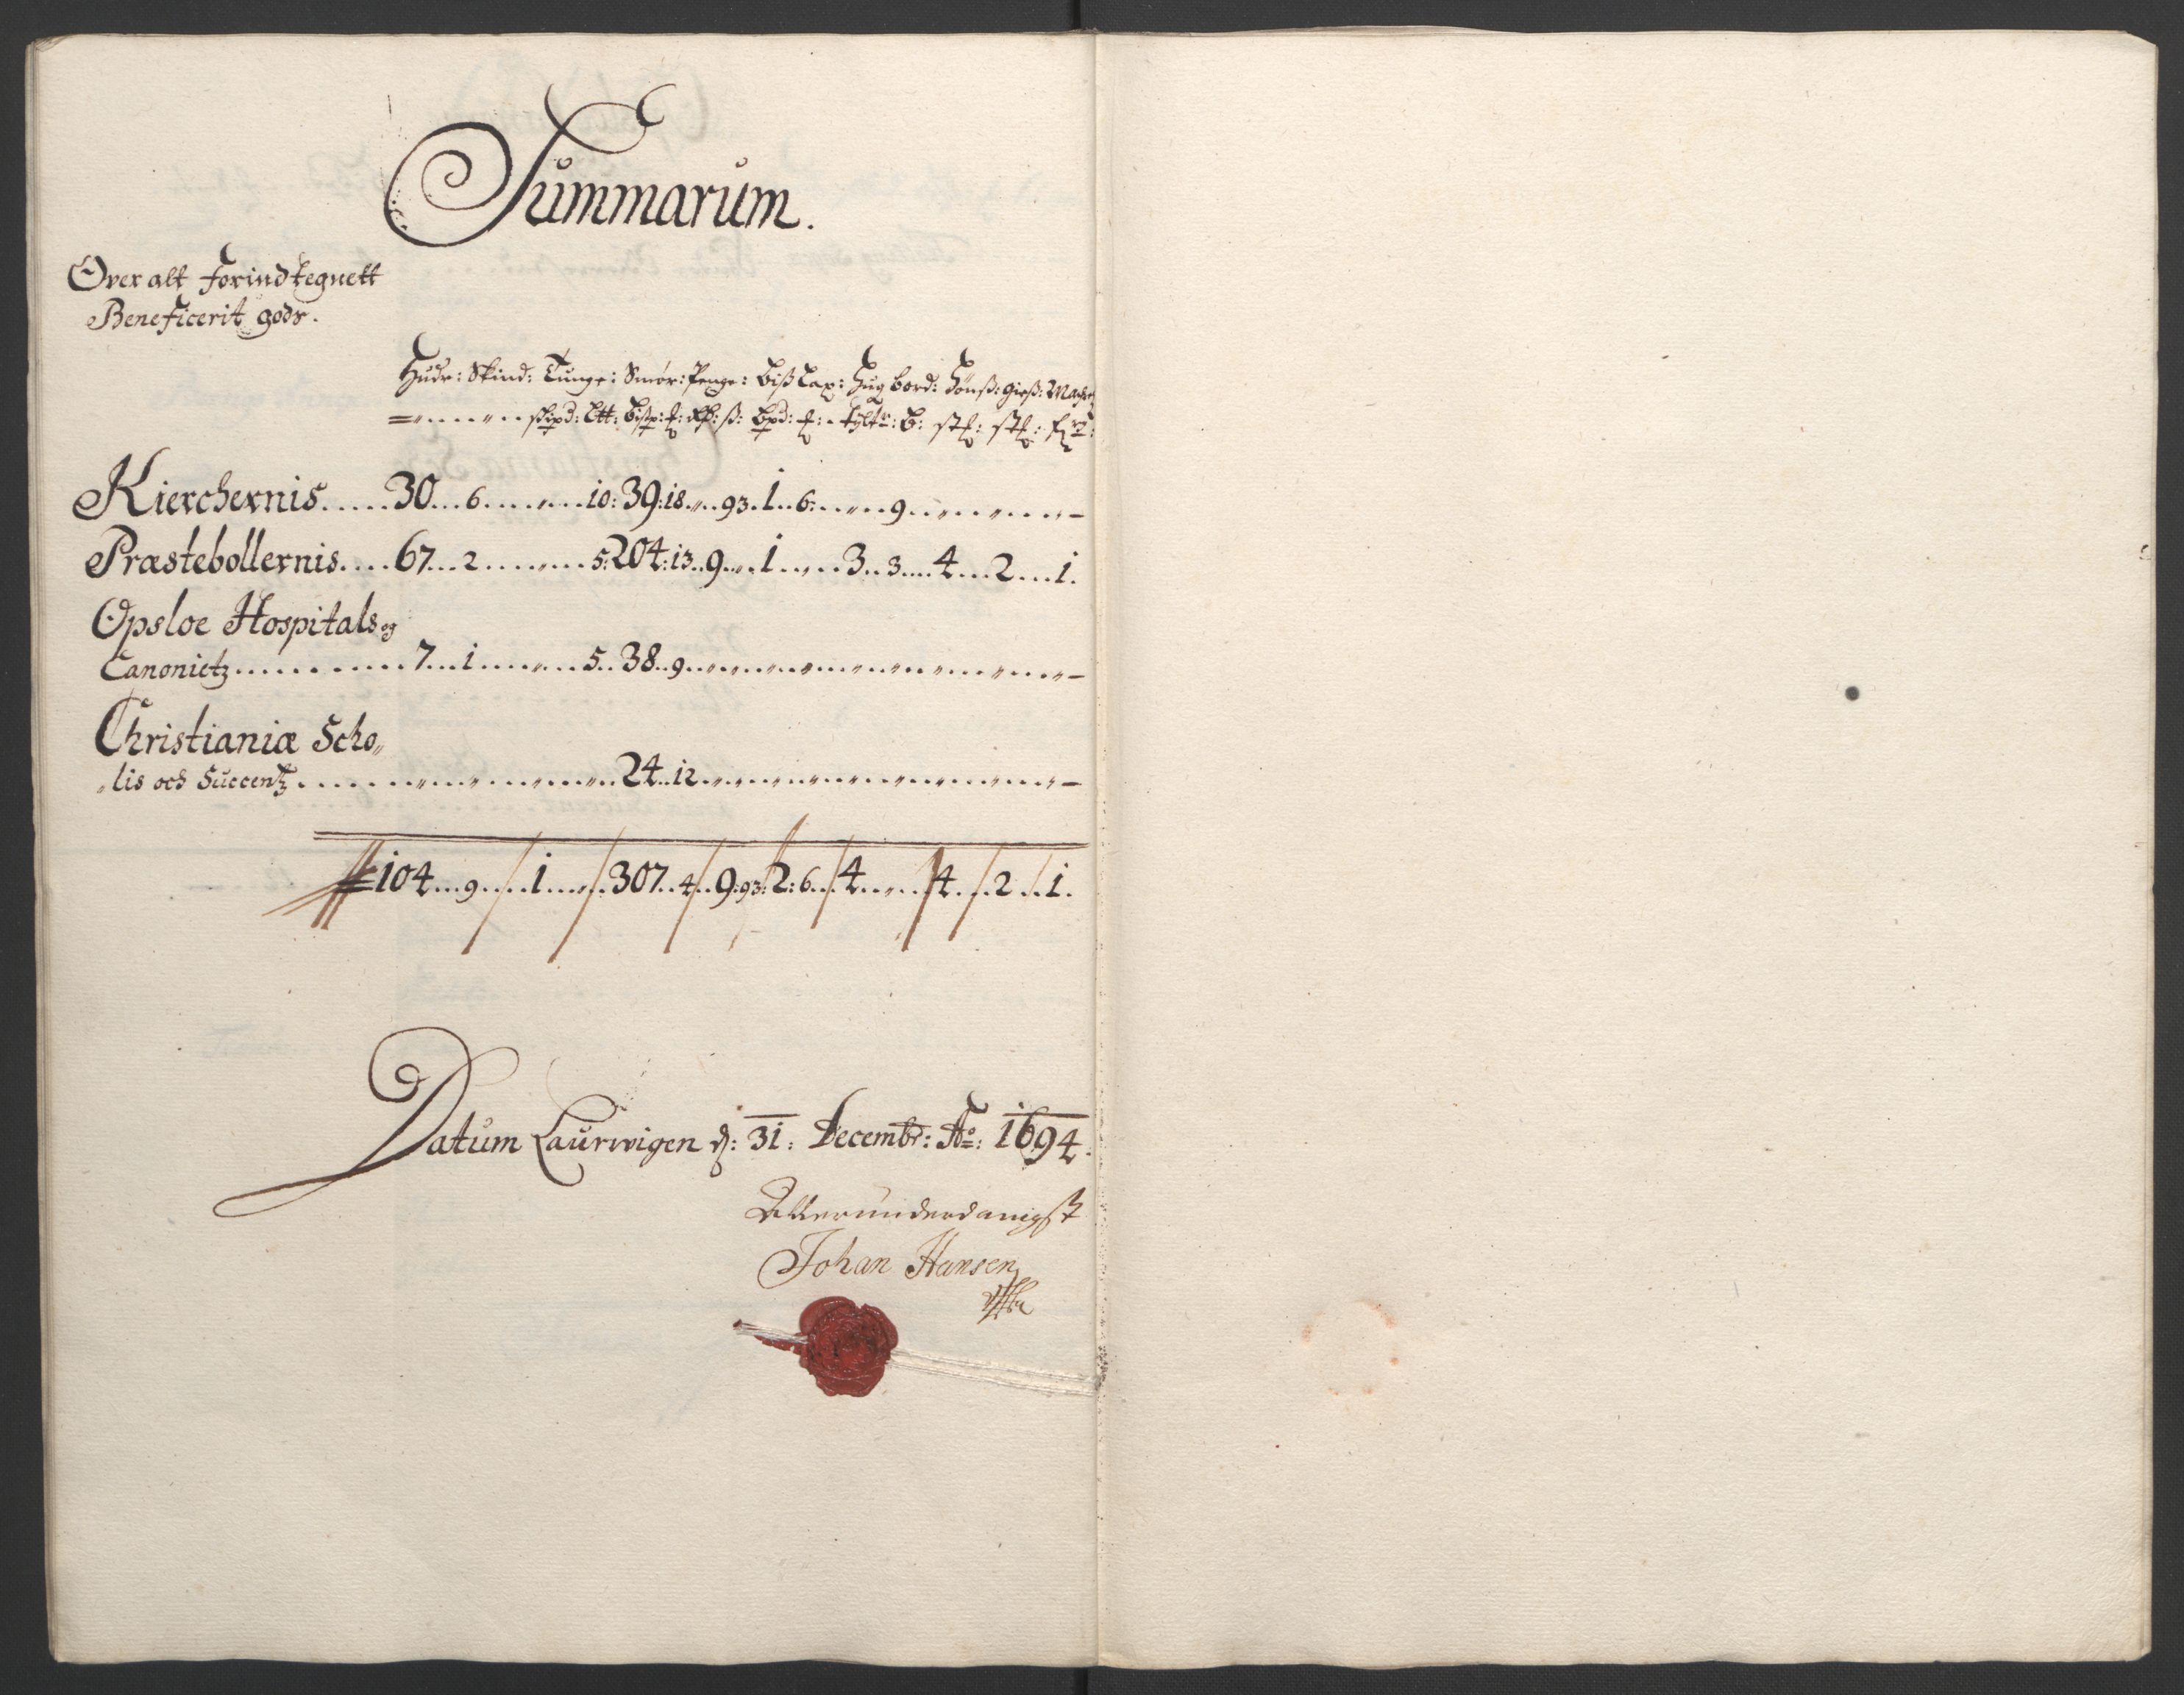 Summarum.
Over alt forindtegnett
Beneficerit godß.
Huder: Skind: Tunge: Smör: Penge: bißLax: Hug bord: Hönß: gieß:
Kierchernis.....30...6..........10:39:18..93.1..6.......9..........
Præstebollernis....67...2..........5:204:13..9....1......3..3....4...2...1.
Opsloe Hospitals og
Canonietz..........7...1........5..38..9..........
Christianiæ Scho„
„lis och Succentz..........24..12..........
104...9.....1.....307..4..9:93:2:6...4......4...2...1.
Datum Laurwigen d: 31: Decembr: Ao: 1694.
Allerunderdanigst
Johan Hansen